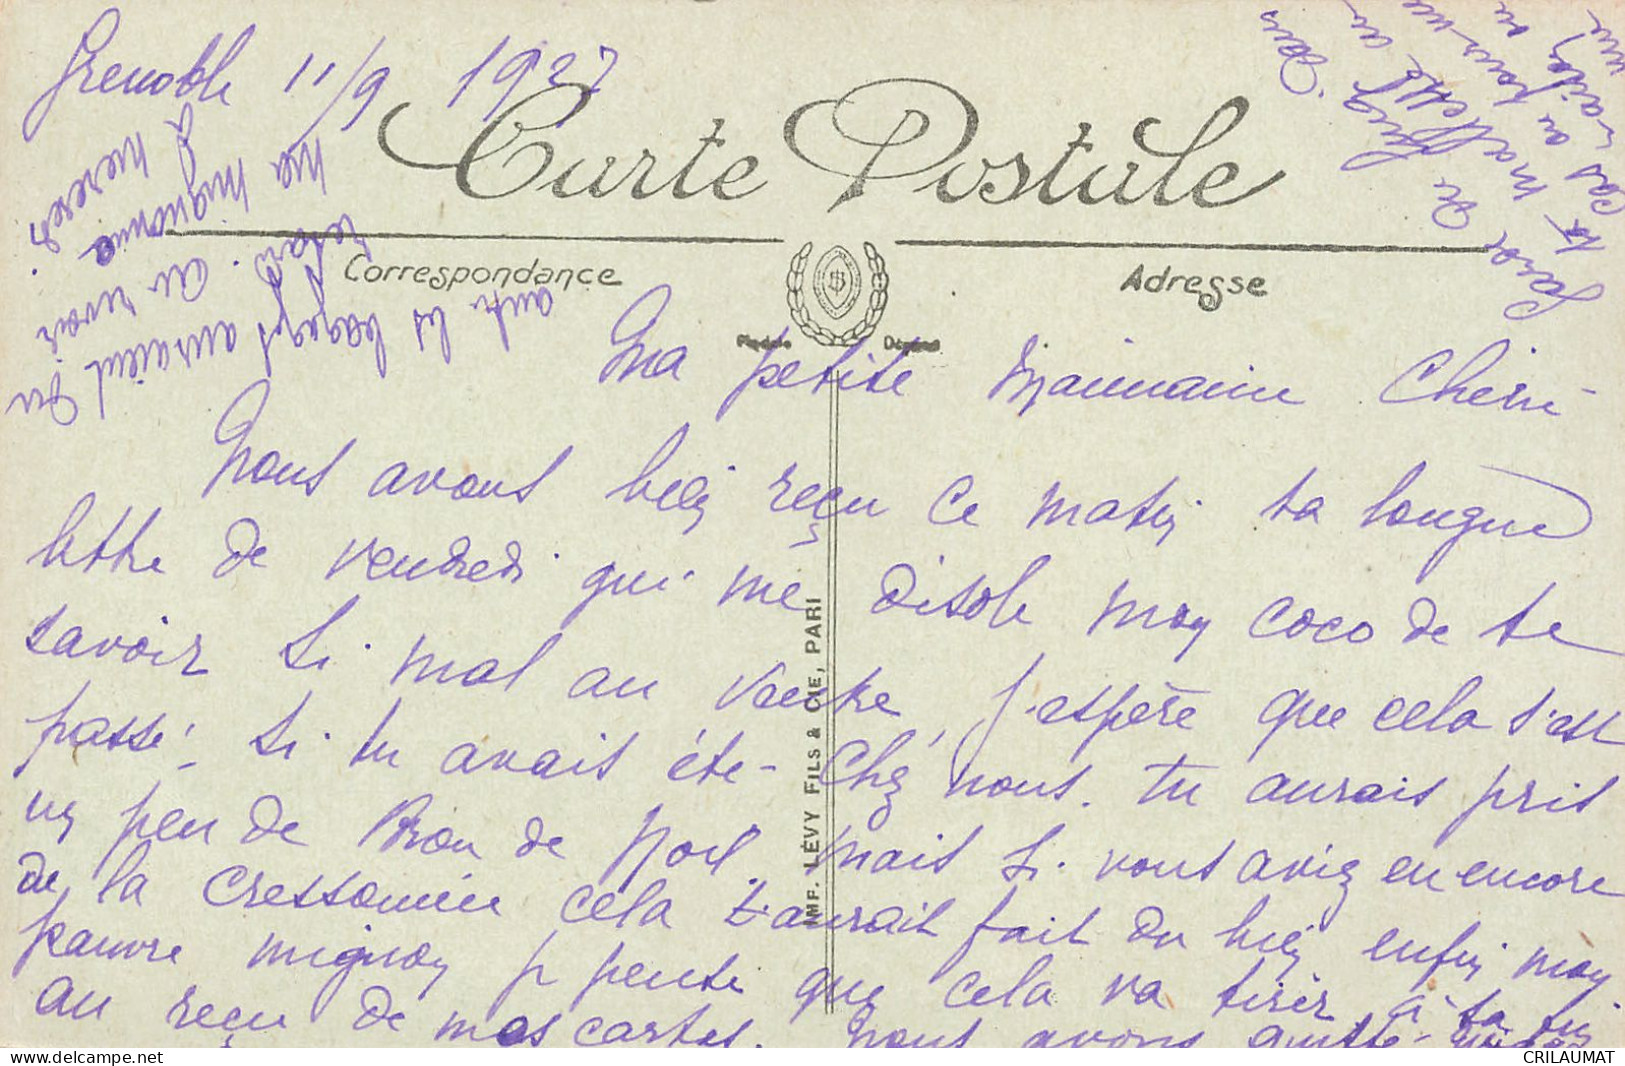 Grenoble 11/9 1927
Carte Postale
Correspondance
Adresse
Ma petite Maimaine Chérie
Nous avons bien reçu ce matin ta longue
lettre de vendredi qui me désole mon coco de te
savoir si mal au ventre, j'espère que cela s'est
passé. si tu avais été chez nous. tu aurais pris
un peu de Bron de Noel. mais si vous aviez eu encore
de la Cressonnée cela t'aurait fait du bien enfin mon
pauvre mignon je pense que cela va tirer à sa fin
au reçu de mes cartes. Nous avons quitté
autr les bagages auraient du
retard. au revoir
ma mignonne
à mercredi.
IMP. LÉVY FILS & CIE, PARI
CRILAUMAT